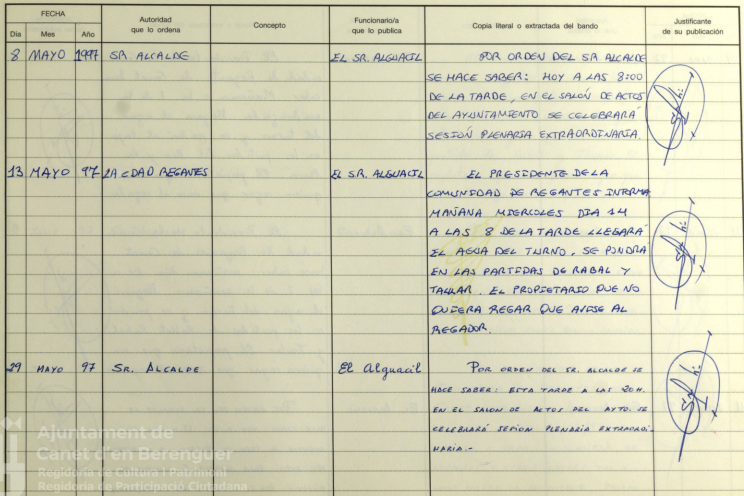 FECHA
Día Mes Año
Autoridad que lo ordena
Concepto
Funcionario/a que lo publica
Copia literal o extractada del bando
Justificante de su publicación
8 MAYO 1997 SR ALCALDE EL SR. ALGUACIL POR ORDEN DEL SR ALCALDE
SE HACE SABER: HOY A LAS 8:00
DE LA TARDE, EN EL SALÓN DE ACTOS
DEL AYUNTAMIENTO SE CELEBRARÁ
SESIÓN PLENARIA EXTRAORDINARIA.
13 MAYO 97 LA CDAD REGANTES EL SR. ALGUACIL EL PRESIDENTE DE LA
COMUNIDAD DE REGANTES INFORMA
MAÑANA MIERCOLES DIA 14
A LAS 8 DE LA TARDE LLEGARÁ
EL AGUA DEL TURNO, SE PONDRA
EN LAS PARTIDAS DE RABAL Y
TALLAR. EL PROPIETARIO QUE NO
QUIERA REGAR QUE AVISE AL
REGADOR.
29 MAYO 97 SR. ALCALDE El Alguacil POR ORDEN DEL SR. ALCALDE SE
HACE SABER: ESTA TARDE A LAS 20 H.
EN EL SALON DE ACTOS DEL AYTO. SE
CELEBRARÁ SESION PLENARIA EXTRAORDI-
NARIA.-
Ajuntament de
Canet d'en Berenguer
Regidoria de Cultura i Patrimoni
Regidoria de Participació Ciutadana